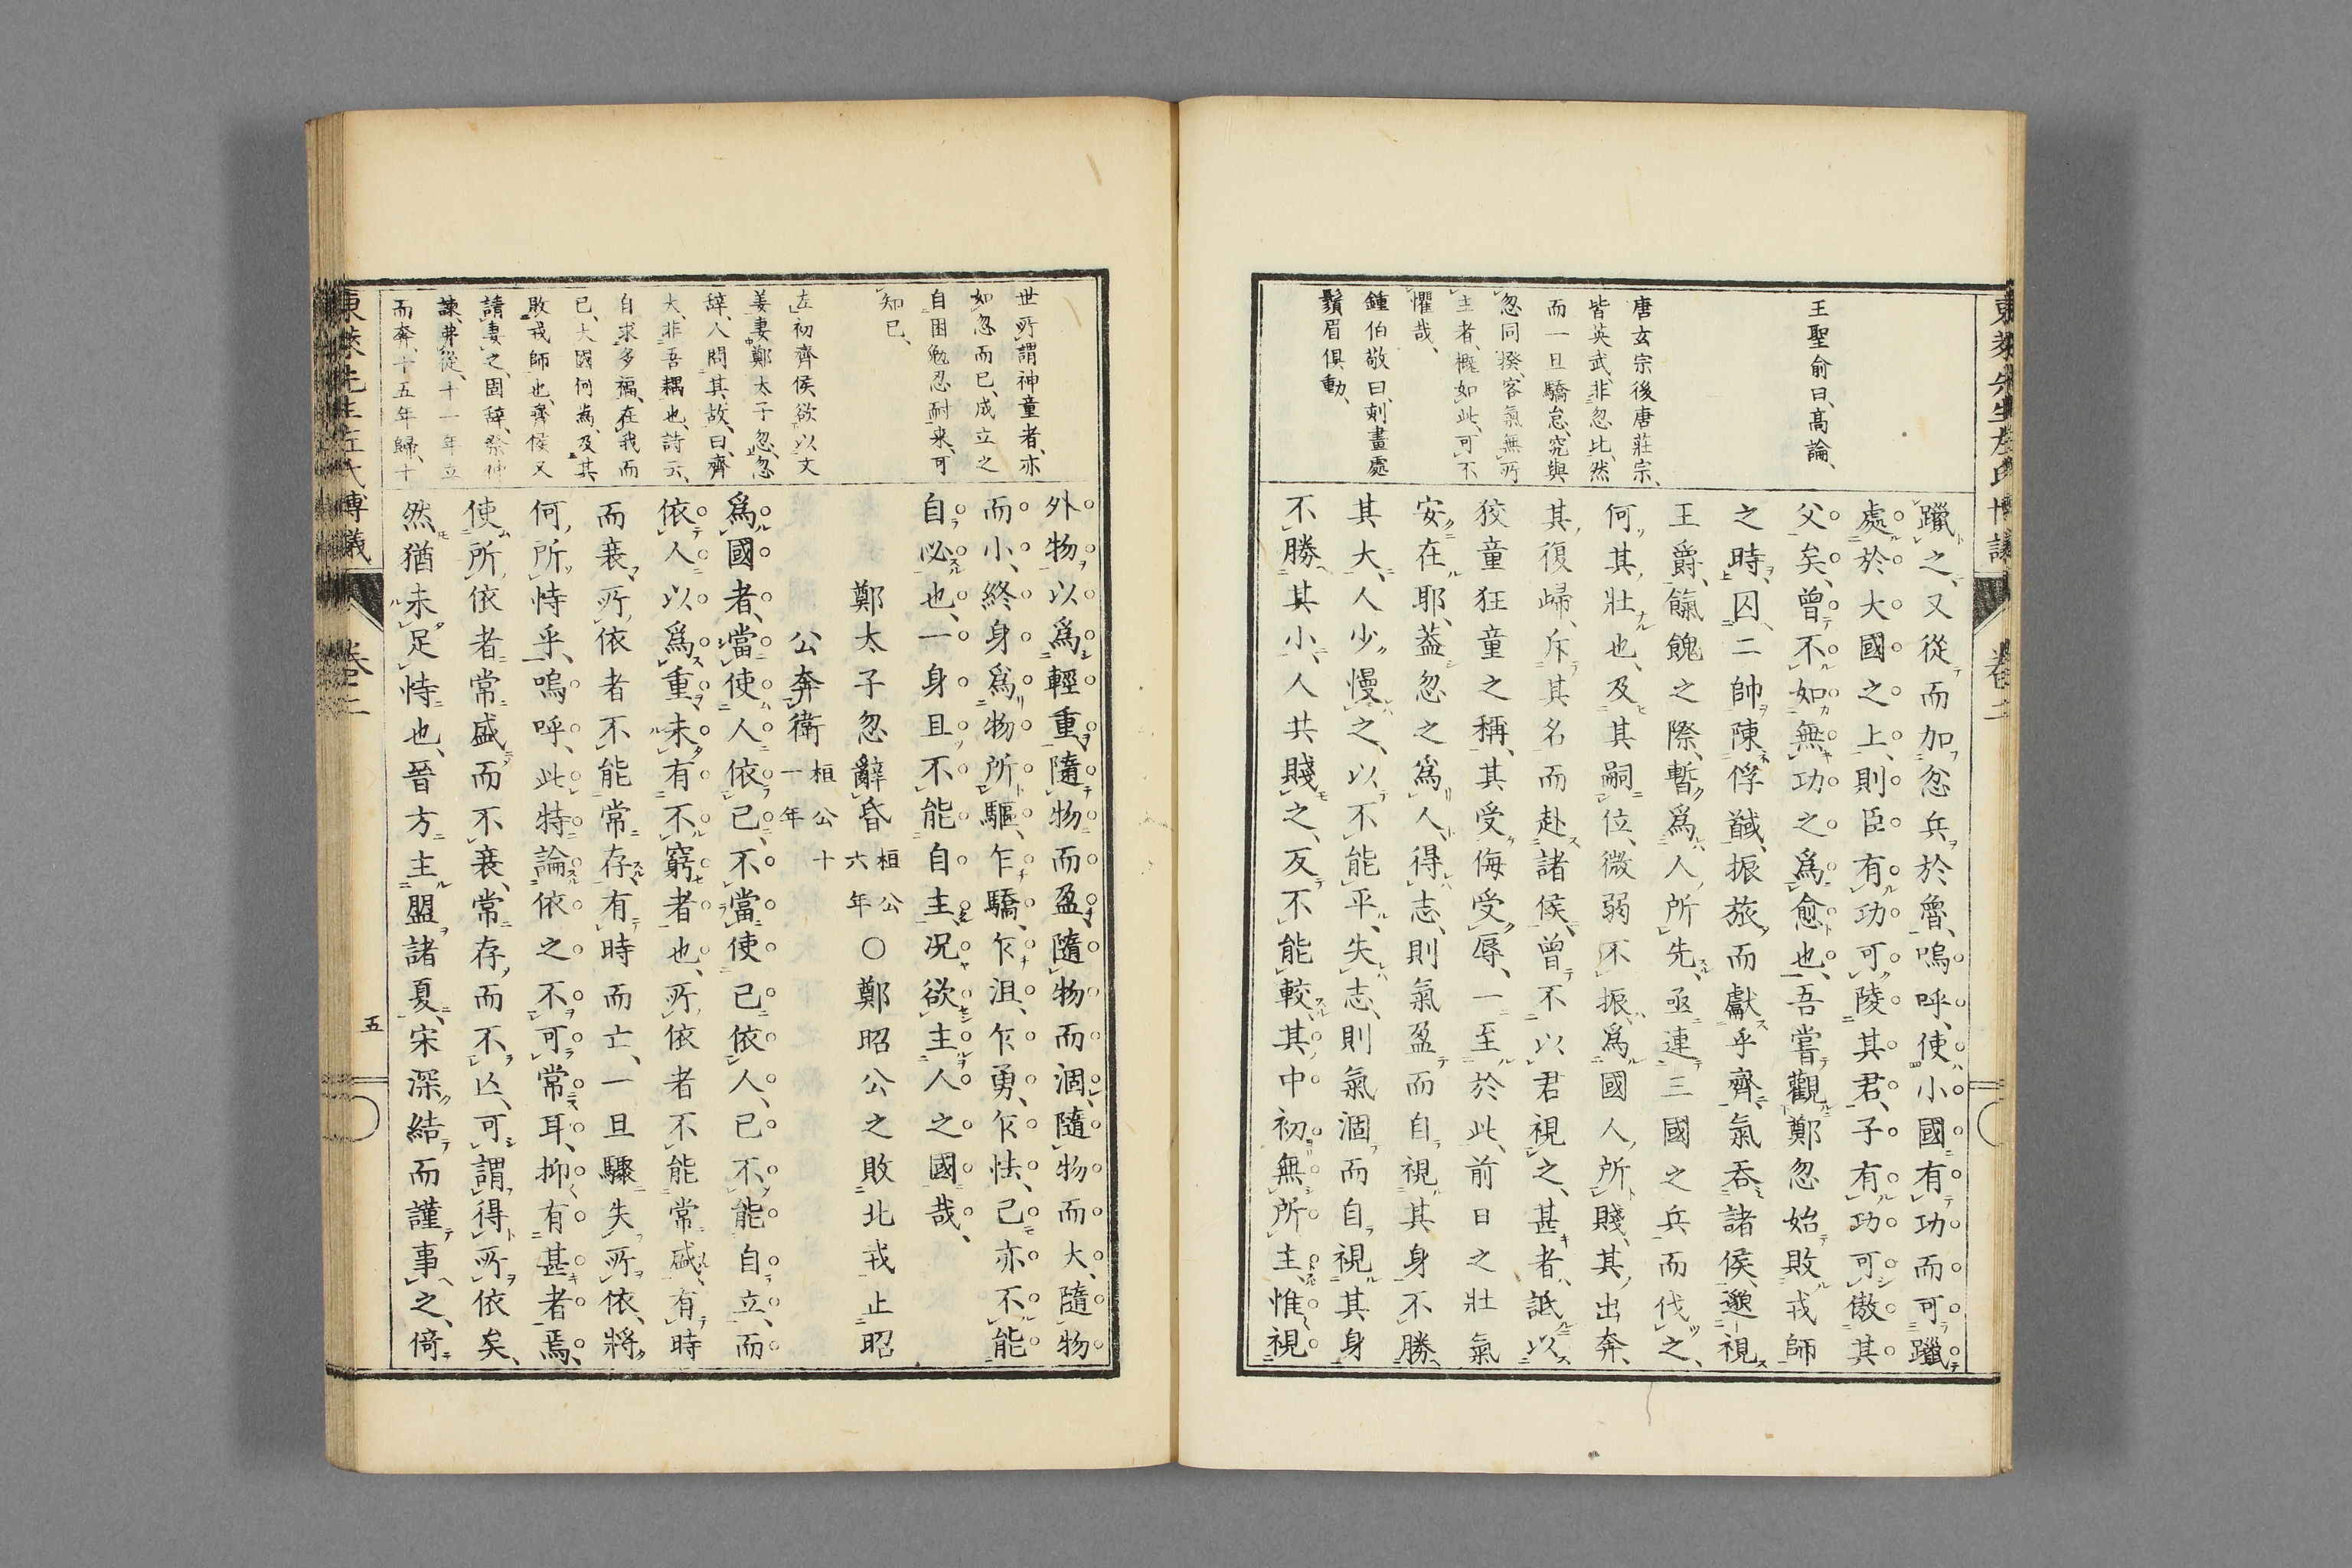 東萊先生左氏博議
卷二
王聖俞曰、高論、
唐玄宗後唐莊宗、
皆英武、非忽比、然
而一旦驕怠、究與
忽同揆、客氣無所
主者、槪如此、可不
懼哉、
鍾伯敬曰、刻畫處
鬚眉俱動、
躐之、又從而加忿兵於魯、嗚呼、使小國有功而可躐
處於大國之上、則臣有功可陵其君、子有功可傲其
父矣、曾不如無功之爲愈也、吾嘗觀鄭忽始敗戎師
之時、囚二帥、陳俘馘、振旅而獻乎齊、氣吞諸侯、邈視
王爵、餼餽之際、暫爲人所先、亟連三國之兵而伐之、
何其壯也、及其嗣位、微弱不振、爲國人所賤、其出奔、
其復歸、斥其名而赴諸侯、曾不以君視之、甚者、詆以
狡童狂童之稱、其受侮受辱、一至於此、前日之壯氣
安在耶、蓋忽之爲人、得志、則氣盈而自視其身不勝
其大、人少慢之、以不能平、失志、則氣涸而自視其身
不勝其小、人共賤之、反不能較、其中初無所主、惟視
世所謂神童者、亦
如忽而已、成立之
自困勉忍耐來、可
知已、
左初齊侯欲以文
姜妻鄭太子忽、忽
辭、人問其故、曰、齊
大、非吾耦也、詩云、
自求多福、在我而
已、大國何爲、及其
敗戎師也、齊侯又
請妻之、固辭、祭仲
諫、弗從、十一年立
而奔、十五年歸、十
外物以爲輕重、隨物而盈、隨物而涸、隨物而大、隨物
而小、終身爲物所驅、乍驕、乍沮、乍勇、乍怯、己亦不能
自必也、一身且不能自主、況欲主人之國哉、
鄭太子忽辭昏桓公六年○鄭昭公之敗北戎止昭
公奔衛桓公十一年
爲國者、當使人依己、不當使己依人、己不能自立、而
依人以爲重、未有不窮者也、所依者不能常盛、有時
而衰、所依者不能常存、有時而亡、一旦驟失所依、將
何所恃乎、嗚呼、此特論依之不可常耳、抑有甚者焉、
使所依者常盛而不衰、常存而不亾、可謂得所依矣、
然猶未足恃也、晉方主盟諸夏、宋深結而謹事之、倚
東萊先生左氏博議
卷二
五